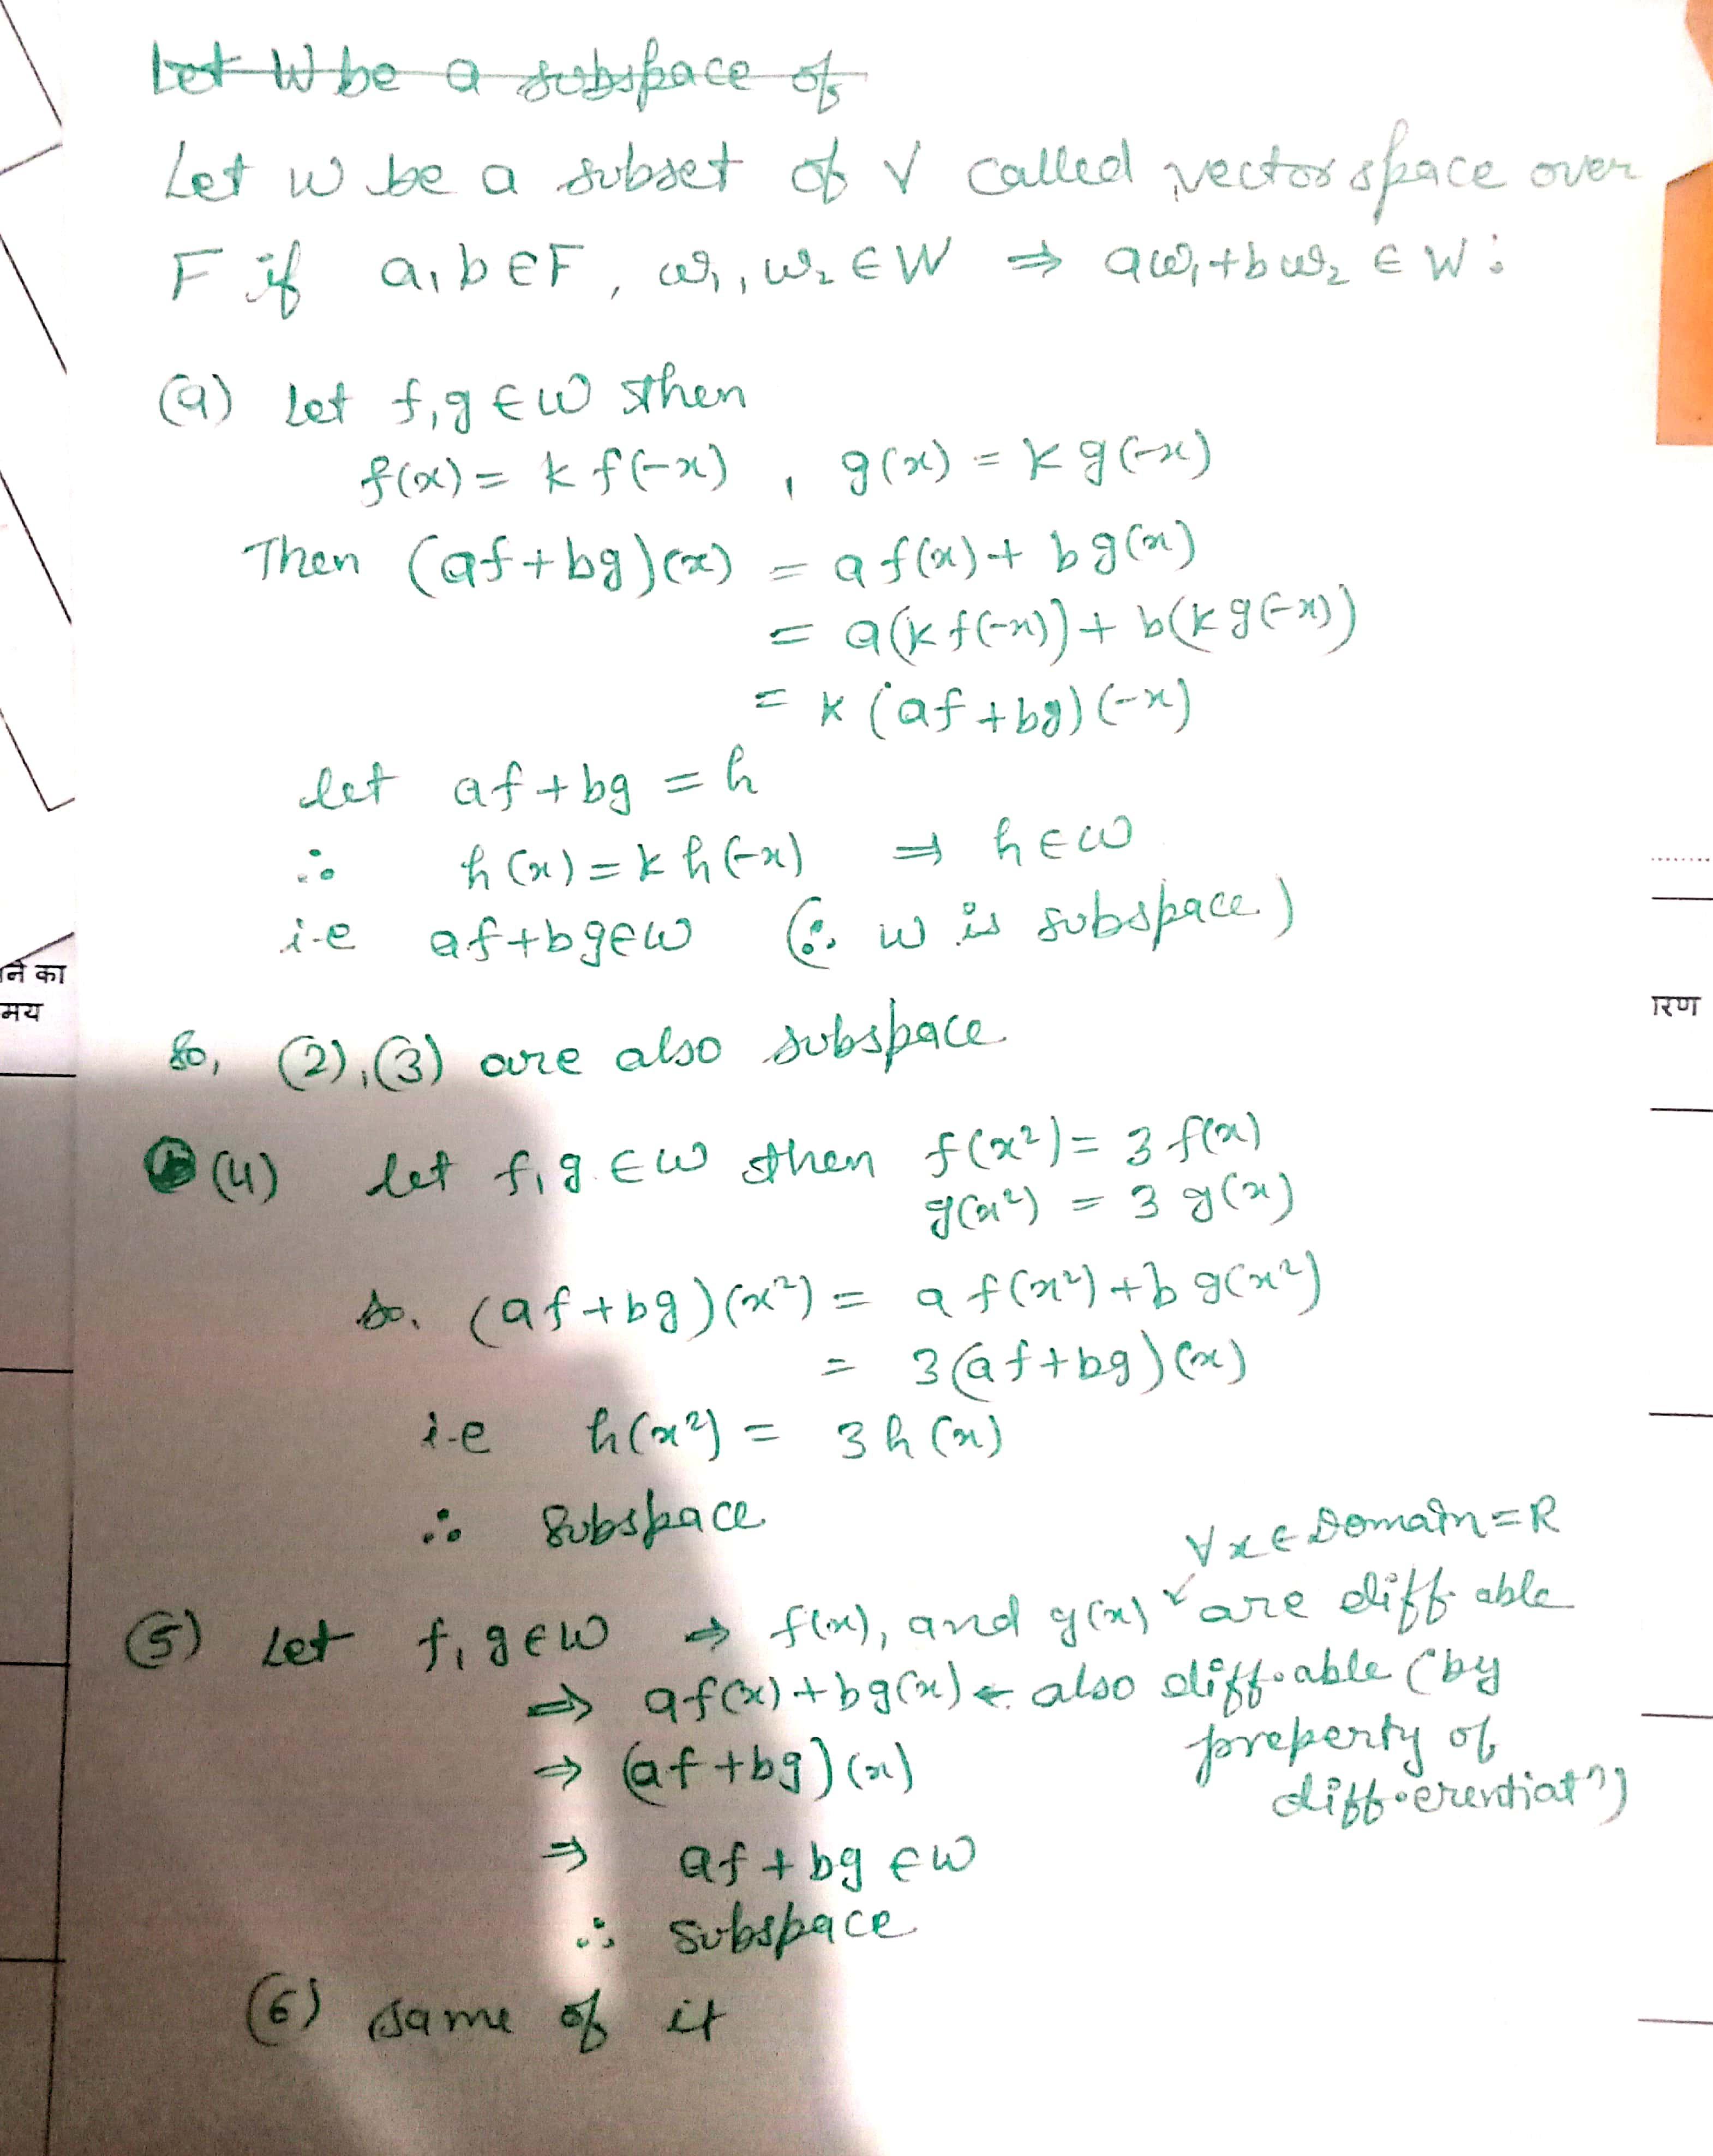 Let W be a subspace of
Let W be a subset of V called vector space over
F if a, b ∈ F, w₁, w₂ ∈ W ⇒ aw₁ + bw₂ ∈ W :
(a) Let f, g ∈ W then
f(x) = k f(-x) , g(x) = k g(-x)
Then (af + bg)(x) = a f(x) + b g(x)
= a(k f(-x)) + b(k g(-x))
= k (af + bg)(-x)
let af + bg = h
∴ h(x) = k h(-x) ⇒ h ∈ W
i-e af + bg ∈ W (∴ W is subspace)
ने का
मय
रण
so, (2), (3) are also subspace
(4) let f, g ∈ W then f(x²) = 3 f(x)
g(x²) = 3 g(x)
so, (af + bg)(x²) = a f(x²) + b g(x²)
= 3(af + bg)(x)
i-e h(x²) = 3 h(x)
∴ Subspace
∀ x ∈ Domain = R
(5) Let f, g ∈ W ⇒ f(x), and g(x) are diff. able
⇒ af(x) + bg(x) ← also diff. able (by
property of
⇒ (af + bg)(x)
differentiatⁿ)
⇒ af + bg ∈ W
∴ subspace
(6) same of it